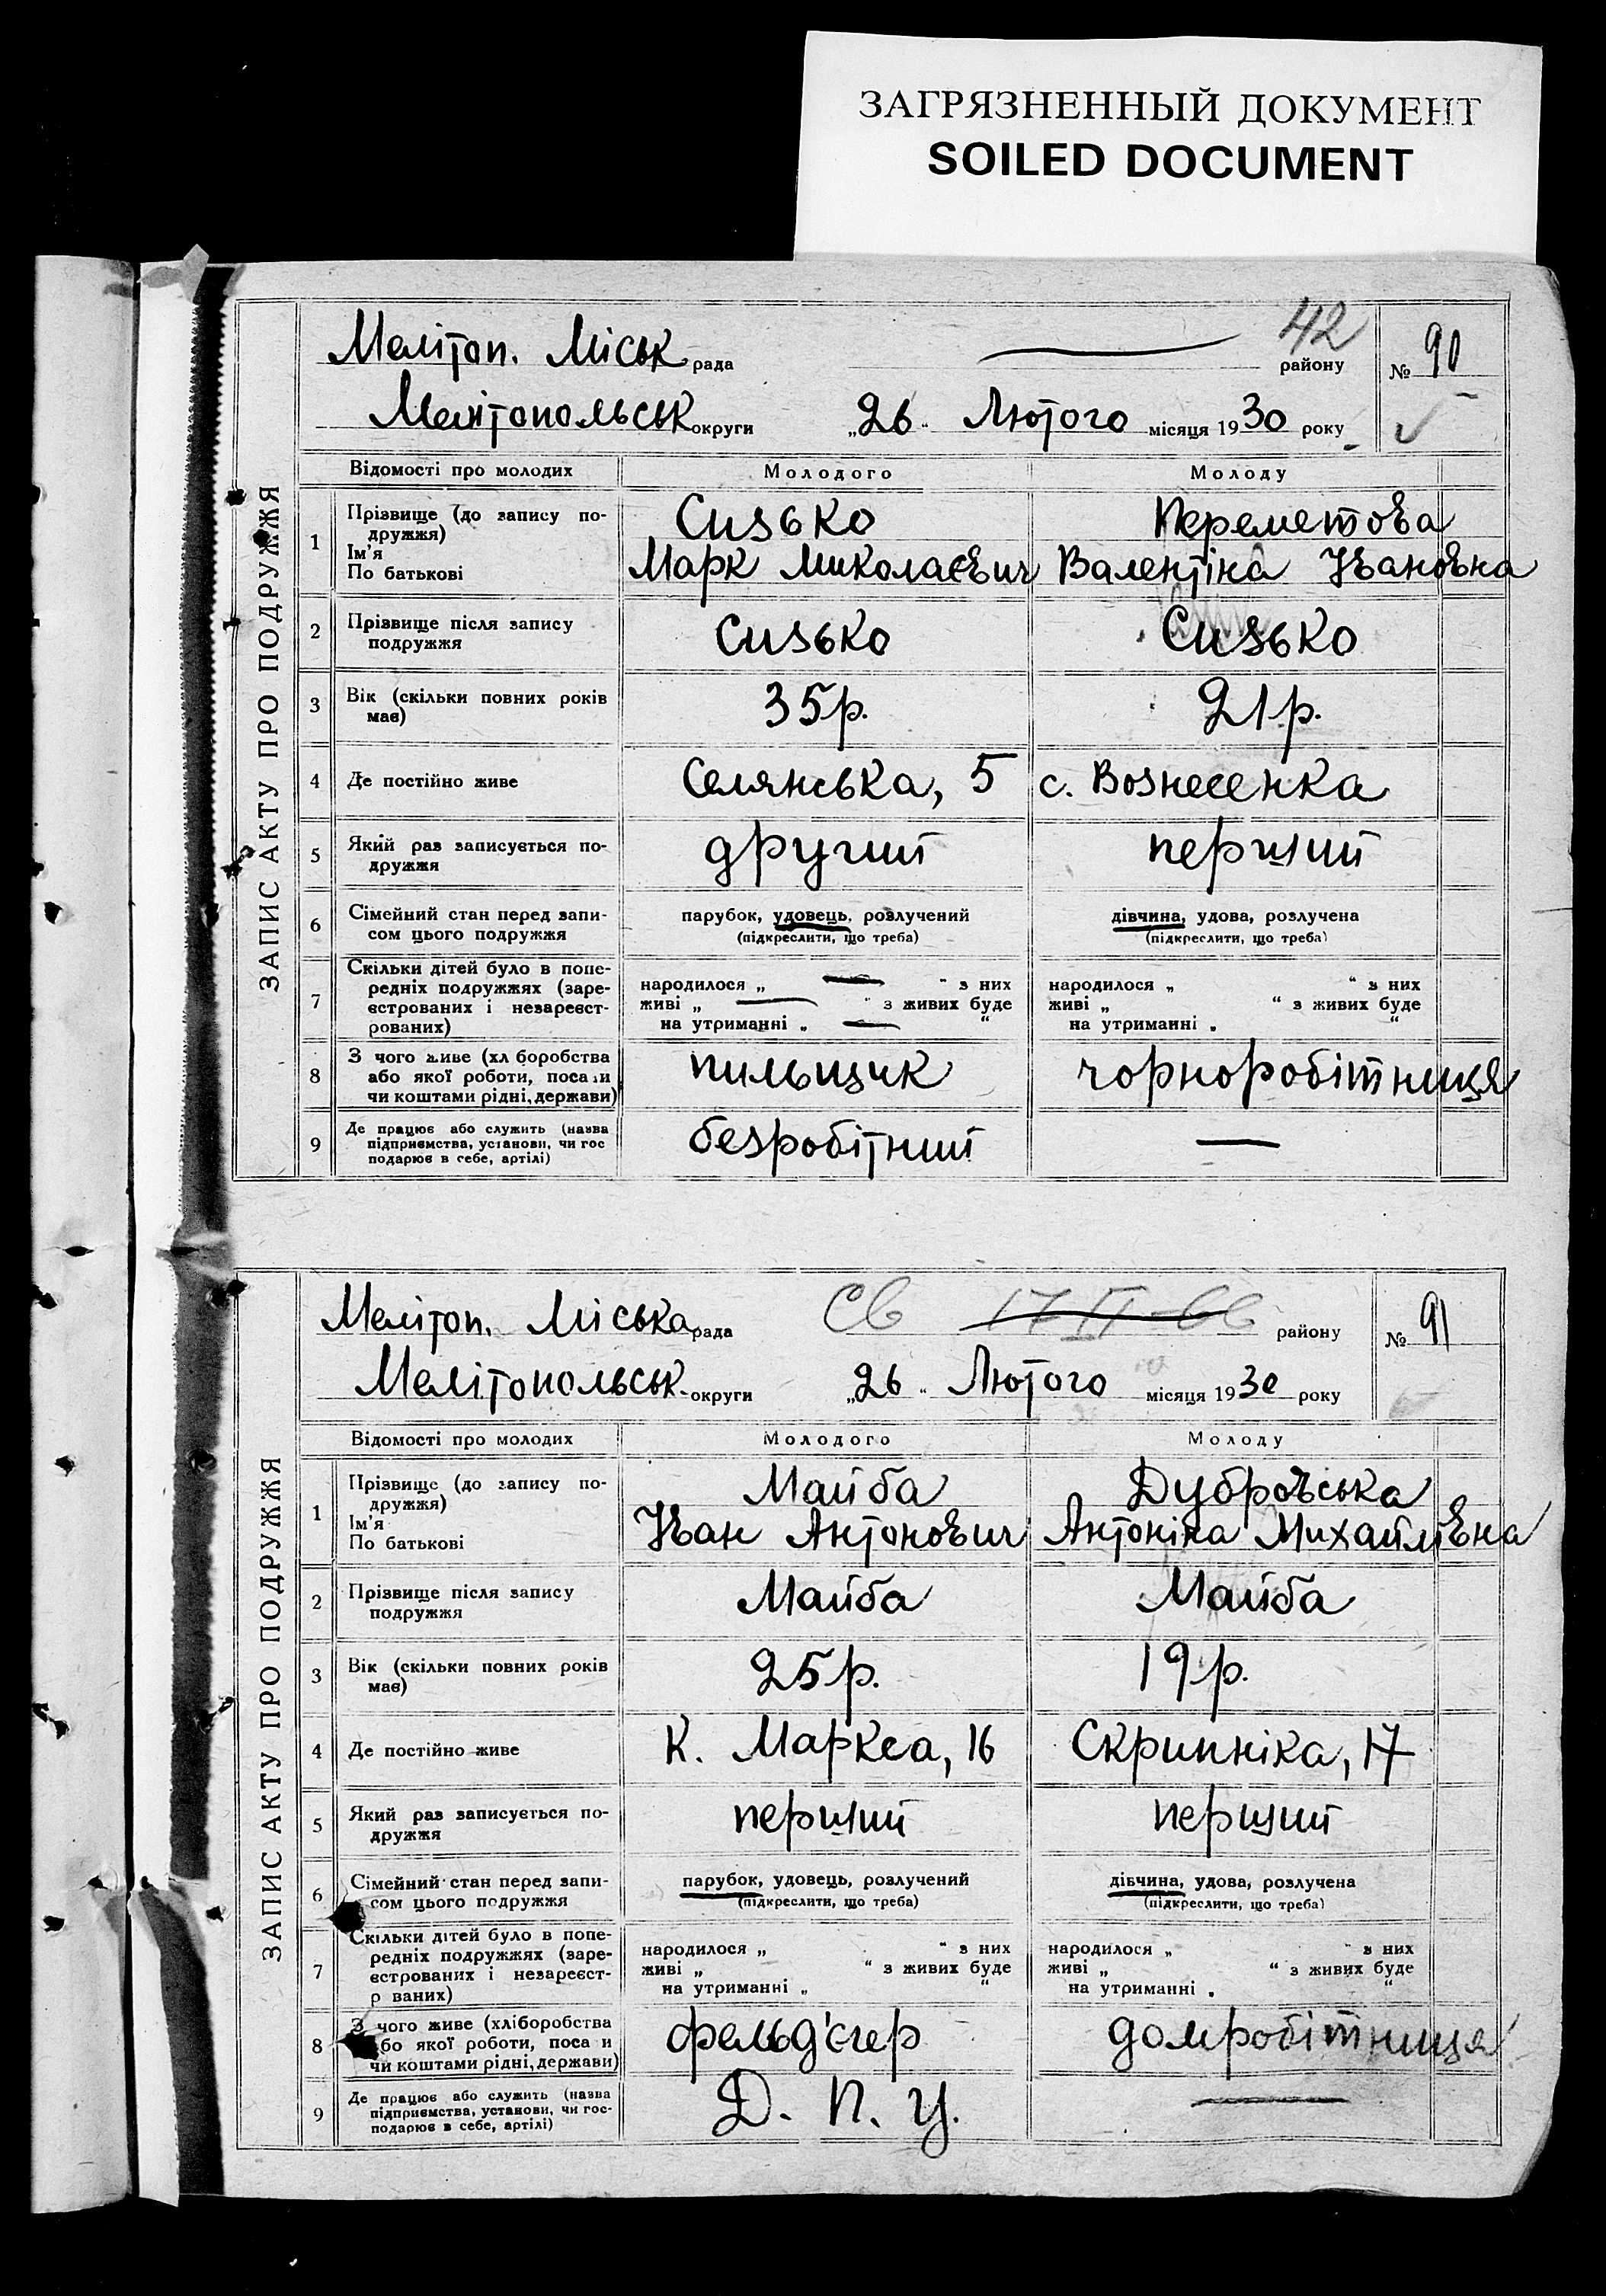 ЗАГРЯЗНЕННЫЙ ДОКУМЕНТ
SOILED DOCUMENT
ЗАПИС АКТУ ПРО ПОДРУЖЖЯ
42
Мелітоп. Міськ рада району № 90
Мелітопольськ округи „26“ Лютого місяця 1930 року
Відомості про молодих Молодого Молоду
1 Прізвище (до запису по-
дружжя)
Ім'я
По батькові
Сизько Переметова
Марк Миколаєвич Валентіна Івановна
2 Прізвище після запису
подружжя
Сизько Сизько
3 Вік (скільки повних років
має)
35р. 21р.
4 Де постійно живе Селянська, 5 с. Вознесенка
5 Який раз записується по-
дружжя
другий перший
6 Сімейний стан перед запи-
сом цього подружжя
парубок, удовець, розлучений дівчина, удова, розлучена
(підкреслити, що треба) (підкреслити, що треба)
7 Скільки дітей було в попе-
редніх подружжях (заре-
єстрованих і незареєст-
рованих)
народилося „ — “ з них народилося „ “ з них
живі „ — “ з живих буде живі „ “ з живих буде
на утриманні „ — “ на утриманні „ “
8 З чого живе (хл боробства
або якої роботи, посади
чи коштами рідні, держави)
пильщик чорноробітниця
9 Де працює або служить (назва
підприємства, установи, чи гос
подарює в себе, артілі)
безробітний —
ЗАПИС АКТУ ПРО ПОДРУЖЖЯ
Мелітоп. Міська рада Св 17 II-66 району № 91
Мелітопольськ. округи „26“ Лютого місяця 1930 року
Відомості про молодих Молодого Молоду
1 Прізвище (до запису по-
дружжя)
Ім'я
По батькові
Майба Дубровська
Іван Антонович Антоніна Михайлівна
2 Прізвище після запису
подружжя
Майба Майба
3 Вік (скільки повних років
має)
25р. 19р.
4 Де постійно живе К. Маркса, 16 Скрипніка, 17
5 Який раз записується по-
дружжя
перший перший
6 Сімейний стан перед запи-
сом цього подружжя
парубок, удовець, розлучений дівчина, удова, розлучена
(підкреслити, що треба) (підкреслити, що треба)
7 Скільки дітей було в попе-
редніх подружжях (заре-
єстрованих і незареєст-
р ваних)
народилося „ “ з них народилося „ “ з них
живі „ “ з живих буде живі „ “ з живих буде
на утриманні „ “ на утриманні „ “
8 З чого живе (хліборобства
бо якої роботи, поса и
чи коштами рідні, держави)
фельд'єгер домробітниця
9 Де працює або служить (назва
підприємства, установи, чи гос-
подарює в себе, артілі)
Д. П. У. —